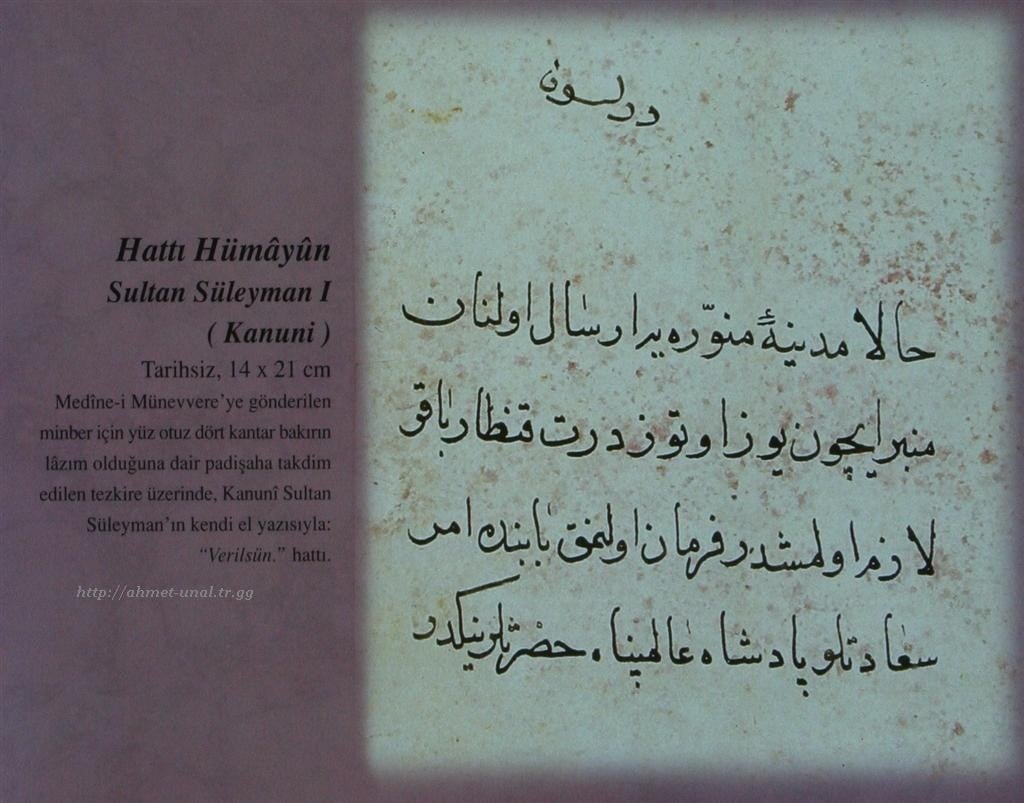 Hattı Hümâyûn
Sultan Süleyman I
( Kanuni )
Tarihsiz, 14 x 21 cm
Medîne-i Münevvere’ye gönderilen
minber için yüz otuz dört kantar bakırın
lâzım olduğuna dair padişaha takdim
edilen tezkire üzerinde, Kanunî Sultan
Süleyman’ın kendi el yazısıyla:
“Verilsün.” hattı.
http://ahmet-unal.tr.gg
حالا مدینۀ منوّره یه ارسال اولنان
منبر ایچون یوز اوتوز درت قنطار باقر
لازم اولمشدر فرمان اولنمق بابنده امر
سعادتلو پادشاه عالمپناه حضرتلرینکدر